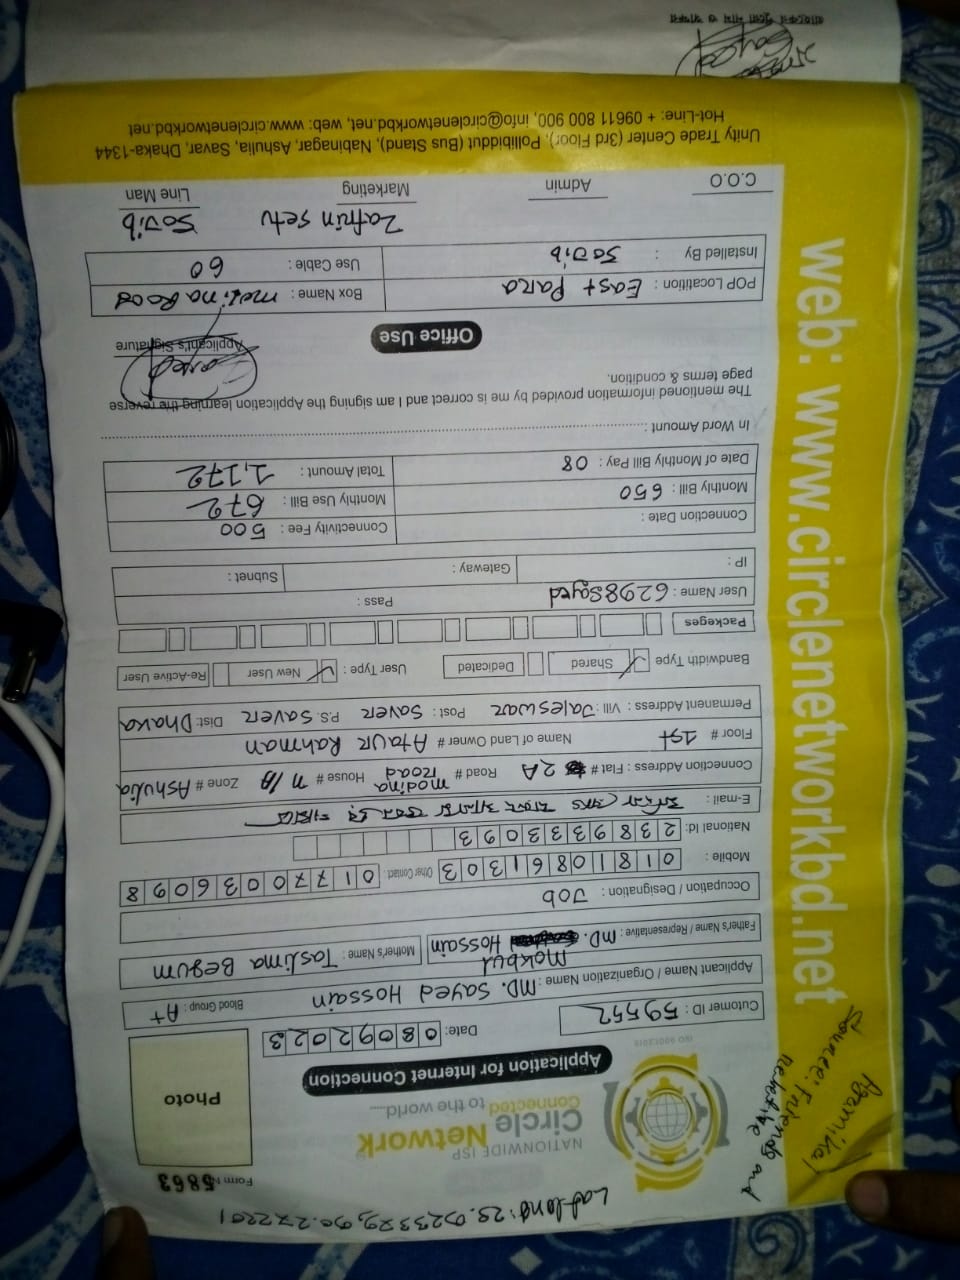 Lat-long: 23.923379, 90.272201
Form No 5863
NATIONWIDE ISP
Circle Network
Connected to the world.....
ISO 9001:2015
Photo
Application for Internet Connection
Cutomer ID : 59552
Date: 08092023
Applicant Name / Organization Name : MD. Sayed Hossain
Blood Group : A+
Father's Name / Representative : MD. Mokbul Hossain
Mother's Name : Taslima Begum
Occupation / Designation : Job
Mobile : 01810861303
Other Contact : 01770036098
National Id: 2389333093
E-mail :
Connection Address : Flat # 2A Road # modina Road House # 11/B Zone # Ashulia
Floor # 1st Name of Land Owner # Ataur Rahman
Permanent Address : Vill : Jaleswar Post : Saver P.S. Saver Dist: Dhaka
Bandwidth Type ✓ Shared Dedicated User Type : ✓ New User Re-Active User
Packeges
User Name : 6298Sayed Pass :
IP : Gateway : Subnet :
Connection Date : Connectivity Fee : 500
Monthly Bill : 650 Monthly Use Bill : 672
Date of Monthly Bill Pay : 08 Total Amount : 1,172
In Word Amount :
The mentioned information provided by me is correct and I am signing the Application learning the reverse
page terms & condition.
Applicant's Signature
Office Use
POP Locatition : East Para Box Name : modina Road
Installed By : Sajib Use Cable : 60
Zafrin Setu Sajib
C.O.O Admin Marketing Line Man
Unity Trade Center (3rd Floor), Pollibiddut (Bus Stand), Nabinagar, Ashulia, Savar, Dhaka-1344
Hot-Line: + 09611 800 900, info@circlenetworkbd.net, web: www.circlenetworkbd.net
web: www.circlenetworkbd.net
Source: Friends and
Relative